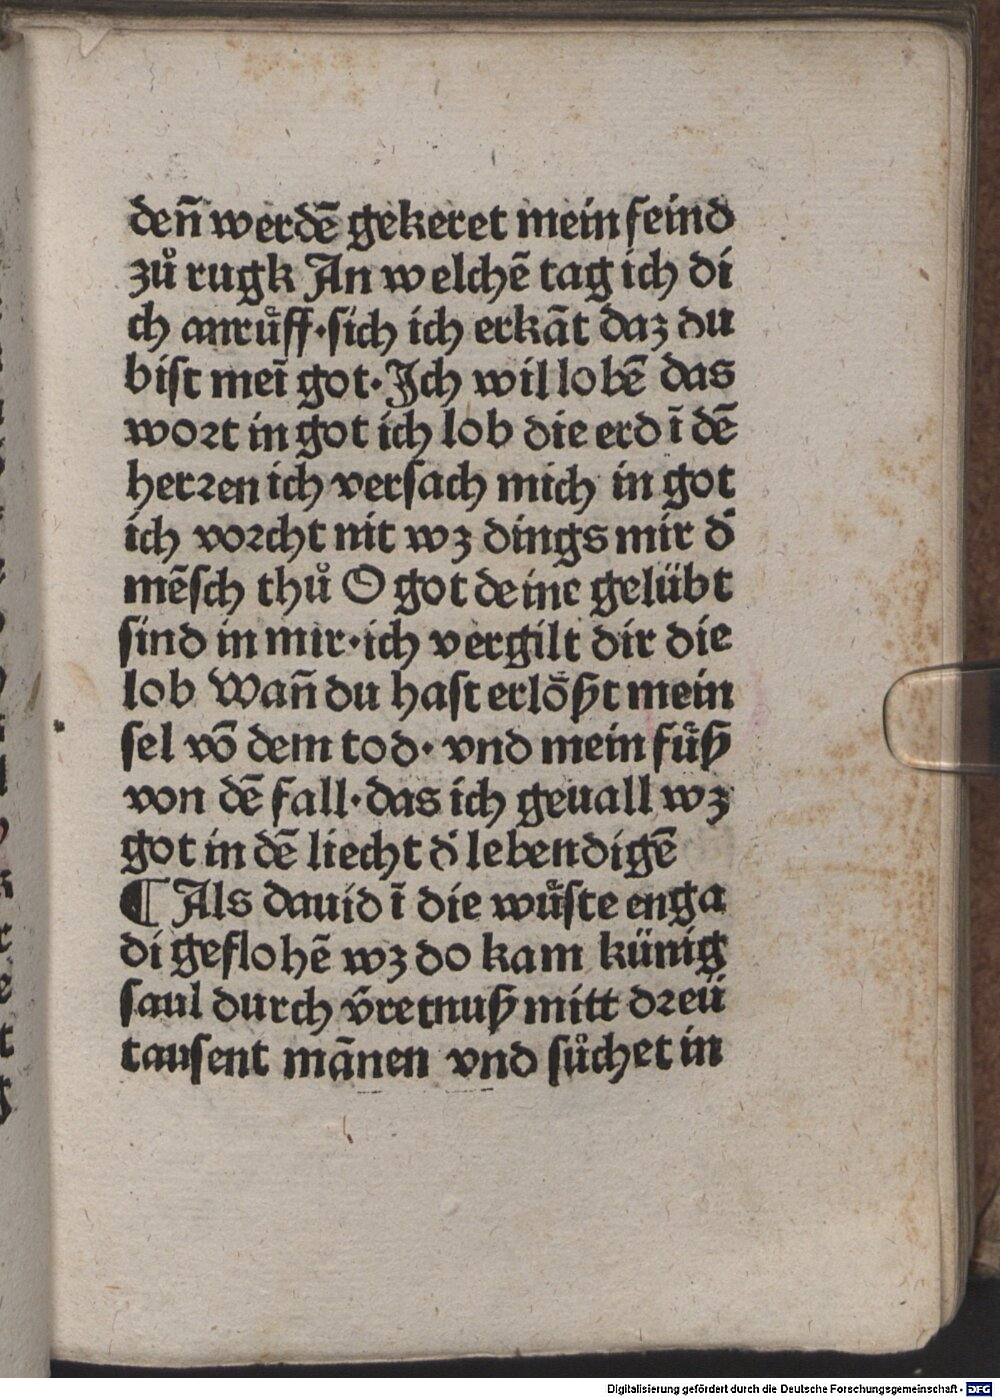 deñ werdē gekeret mein feind
zů rugk An welchē tag ich di
ch anrůff·sich ich erkāt daz du
bist meī got·Ich wil lobē das
wort in got ich lob die erd ī dē
herren ich versach mich in got
ich vorcht nit wz dings mir d̄
mēsch thů O got deine gelübt
sind in mir·ich vergilt dir die
lob Wañ du hast erlößt mein
sel vō dem tod·vnd mein fůß
von dē fall·das ich geuall wz
got in dē liecht d̄ lebendigē
¶ Als dauid ī die wůste enga
di geflohē wz do kam künig
saul durch v̄retnuß mitt dreü
tausent mānen vnd sůchet in
Digitalisierung gefördert durch die Deutsche Forschungsgemeinschaft - DFG